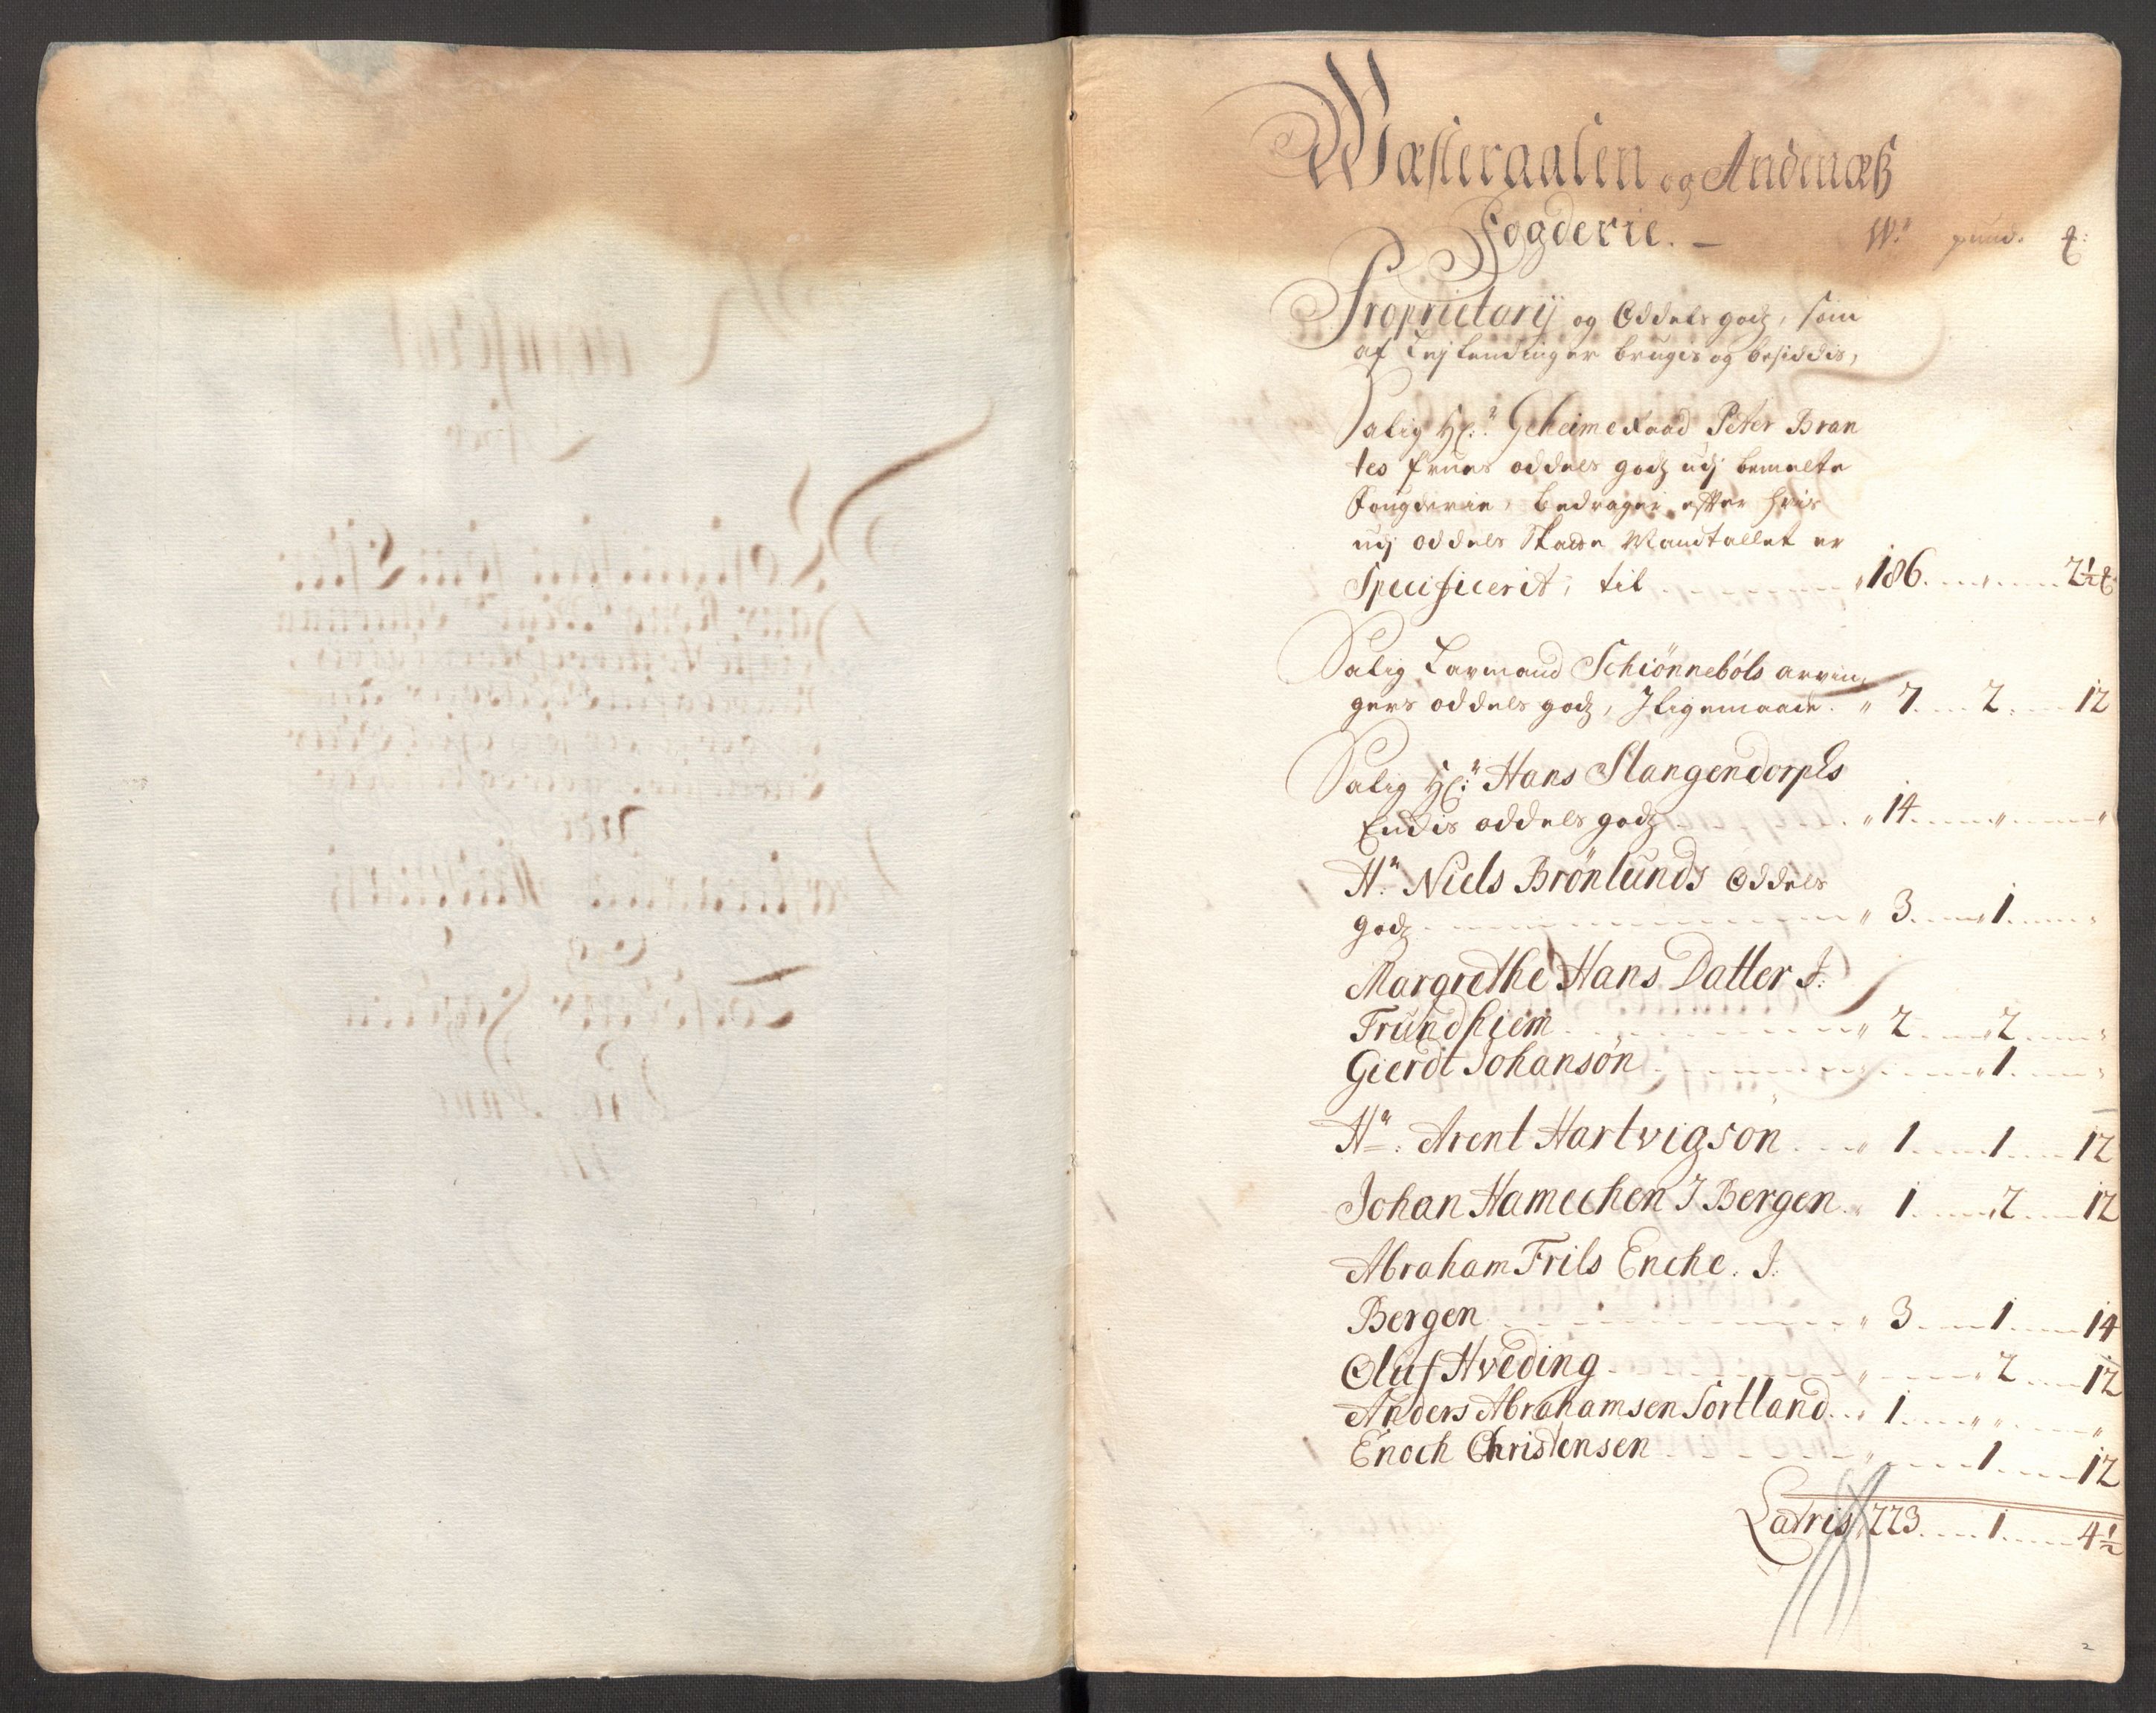 Wæsteraalen og Andenæß
Fogderie. — W: pund. ℔:
Proprietarij og Oddels godz, som
af Lejlendinger bruges og besiddis,
Salig Hr: Geheimeraad Peter Bran
tes Frues oddels godz udj bemelte
Fougderie, bedrager efter hvis
udj oddels Skade Mandtallet er
Specificerit, til 186 2½ ℔
Salig Laumand Schiønnebøls arvin
gers oddels godz, Jligemaade 7 2 12
Salig Hr: Hans Stangendorphs
Endis oddels godz 14 " "
Hr: Niels Brønlunds Oddels
godz 3 1 "
Margrethe Hans Datter J:
Trundhiem 2 2 "
Gierdt Johansøn 1 "
Hr: Arent Hartvigsøn 1 1 12
Johan Hamechen J Bergen 1 2 12
Abraham Frils Enche. J:
Bergen 3 1 14
Oluf Hveding 2 12
Anders Abrahamsen Sortland 1 " "
Enoch Christensen 1 12
Latris 223 1 4½
2